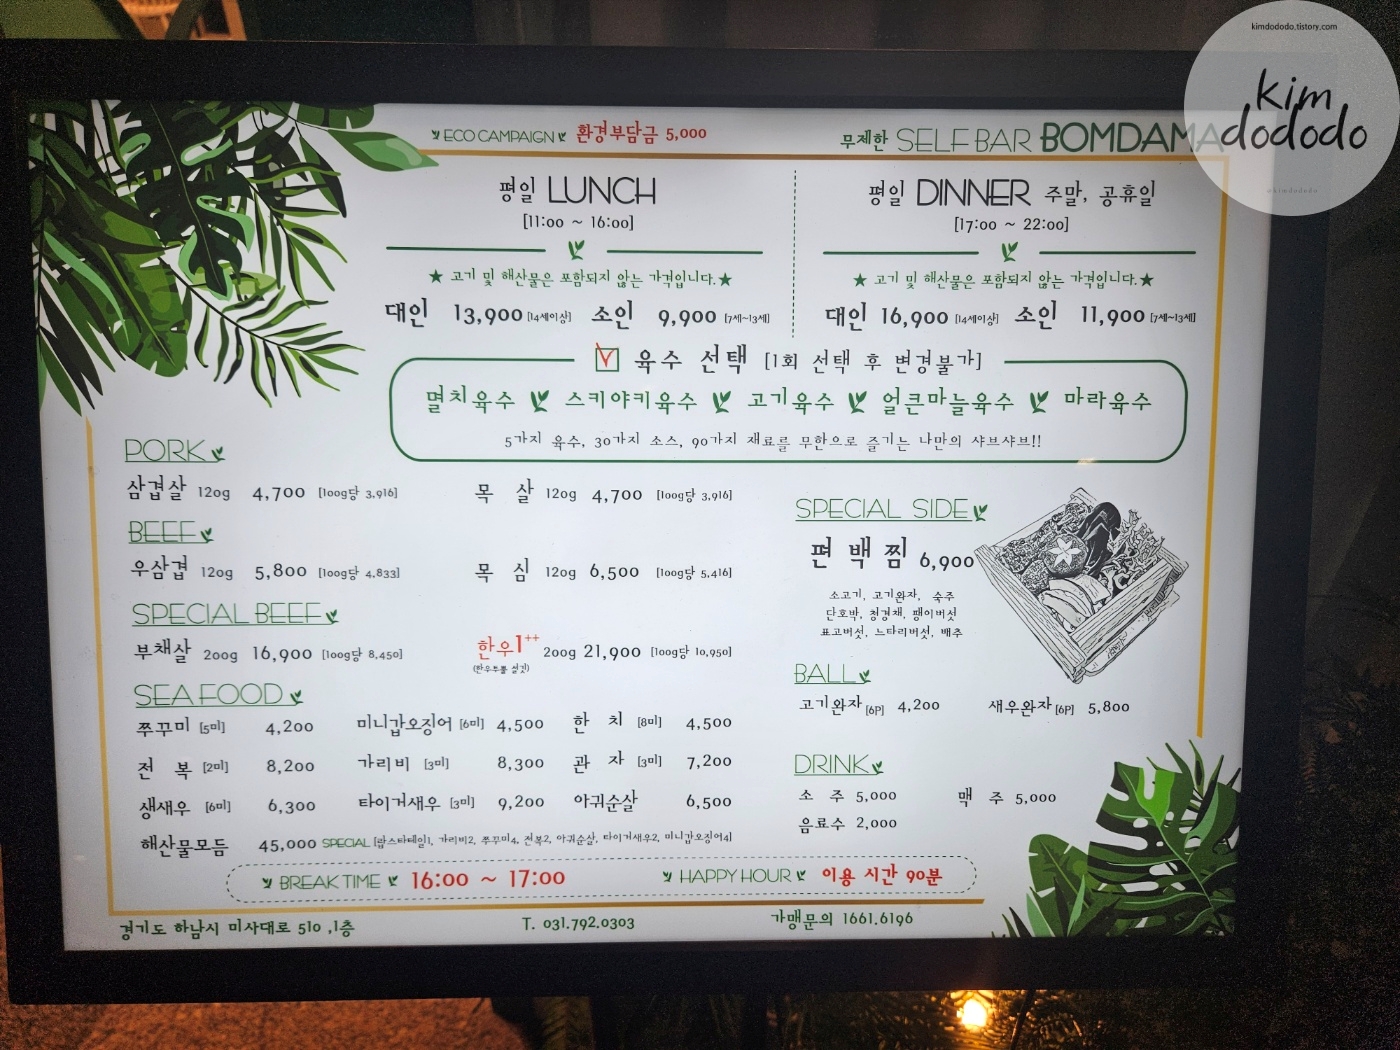 kimdododo.tistory.com
kim
dododo
@kimdododo
ECO CAMPAIGN 환경부담금 5,000
무제한 SELF BAR BOMDAMA
평일 LUNCH
[11:00 ~ 16:00]
★ 고기 및 해산물은 포함되지 않는 가격입니다.★
대인 13,900 [14세이상] 소인 9,900 [7세~13세]
평일 DINNER 주말, 공휴일
[17:00 ~ 22:00]
★ 고기 및 해산물은 포함되지 않는 가격입니다.★
대인 16,900 [14세이상] 소인 11,900 [7세~13세]
육수 선택 [1회 선택 후 변경불가]
멸치육수 스키야키육수 고기육수 얼큰마늘육수 마라육수
5가지 육수, 30가지 소스, 90가지 재료를 무한으로 즐기는 나만의 샤브샤브!!
PORK
삼겹살 120g 4,700 [100g당 3,916] 목 살 120g 4,700 [100g당 3,916]
BEEF
우삼겹 120g 5,800 [100g당 4,833] 목 심 120g 6,500 [100g당 5,416]
SPECIAL BEEF
부채살 200g 16,900 [100g당 8,450] 한우1++ 200g 21,900 [100g당 10,950]
SEA FOOD
쭈꾸미 [5미] 4,200 미니갑오징어 [6미] 4,500 한 치 [8미] 4,500
전 복 [2미] 8,200 가리비 [3미] 8,300 관 자 [3미] 7,200
생새우 [6미] 6,300 타이거새우 [3미] 9,200 아귀순살 6,500
해산물모듬 45,000 SPECIAL [랍스타테일1, 가리비2, 쭈꾸미4, 전복2, 아귀순살, 타이거새우2, 미니갑오징어4]
SPECIAL SIDE
편 백 찜 6,900
소고기, 고기완자, 숙주
단호박, 청경채, 팽이버섯
표고버섯, 느타리버섯, 배추
BALL
고기완자 [6P] 4,200 새우완자 [6P] 5,800
DRINK
소 주 5,000 맥 주 5,000
음료수 2,000
BREAK TIME 16:00 ~ 17:00 HAPPY HOUR 이용 시간 90분
경기도 하남시 미사대로 510 ,1층 T. 031.792.0303 가맹문의 1661.6196